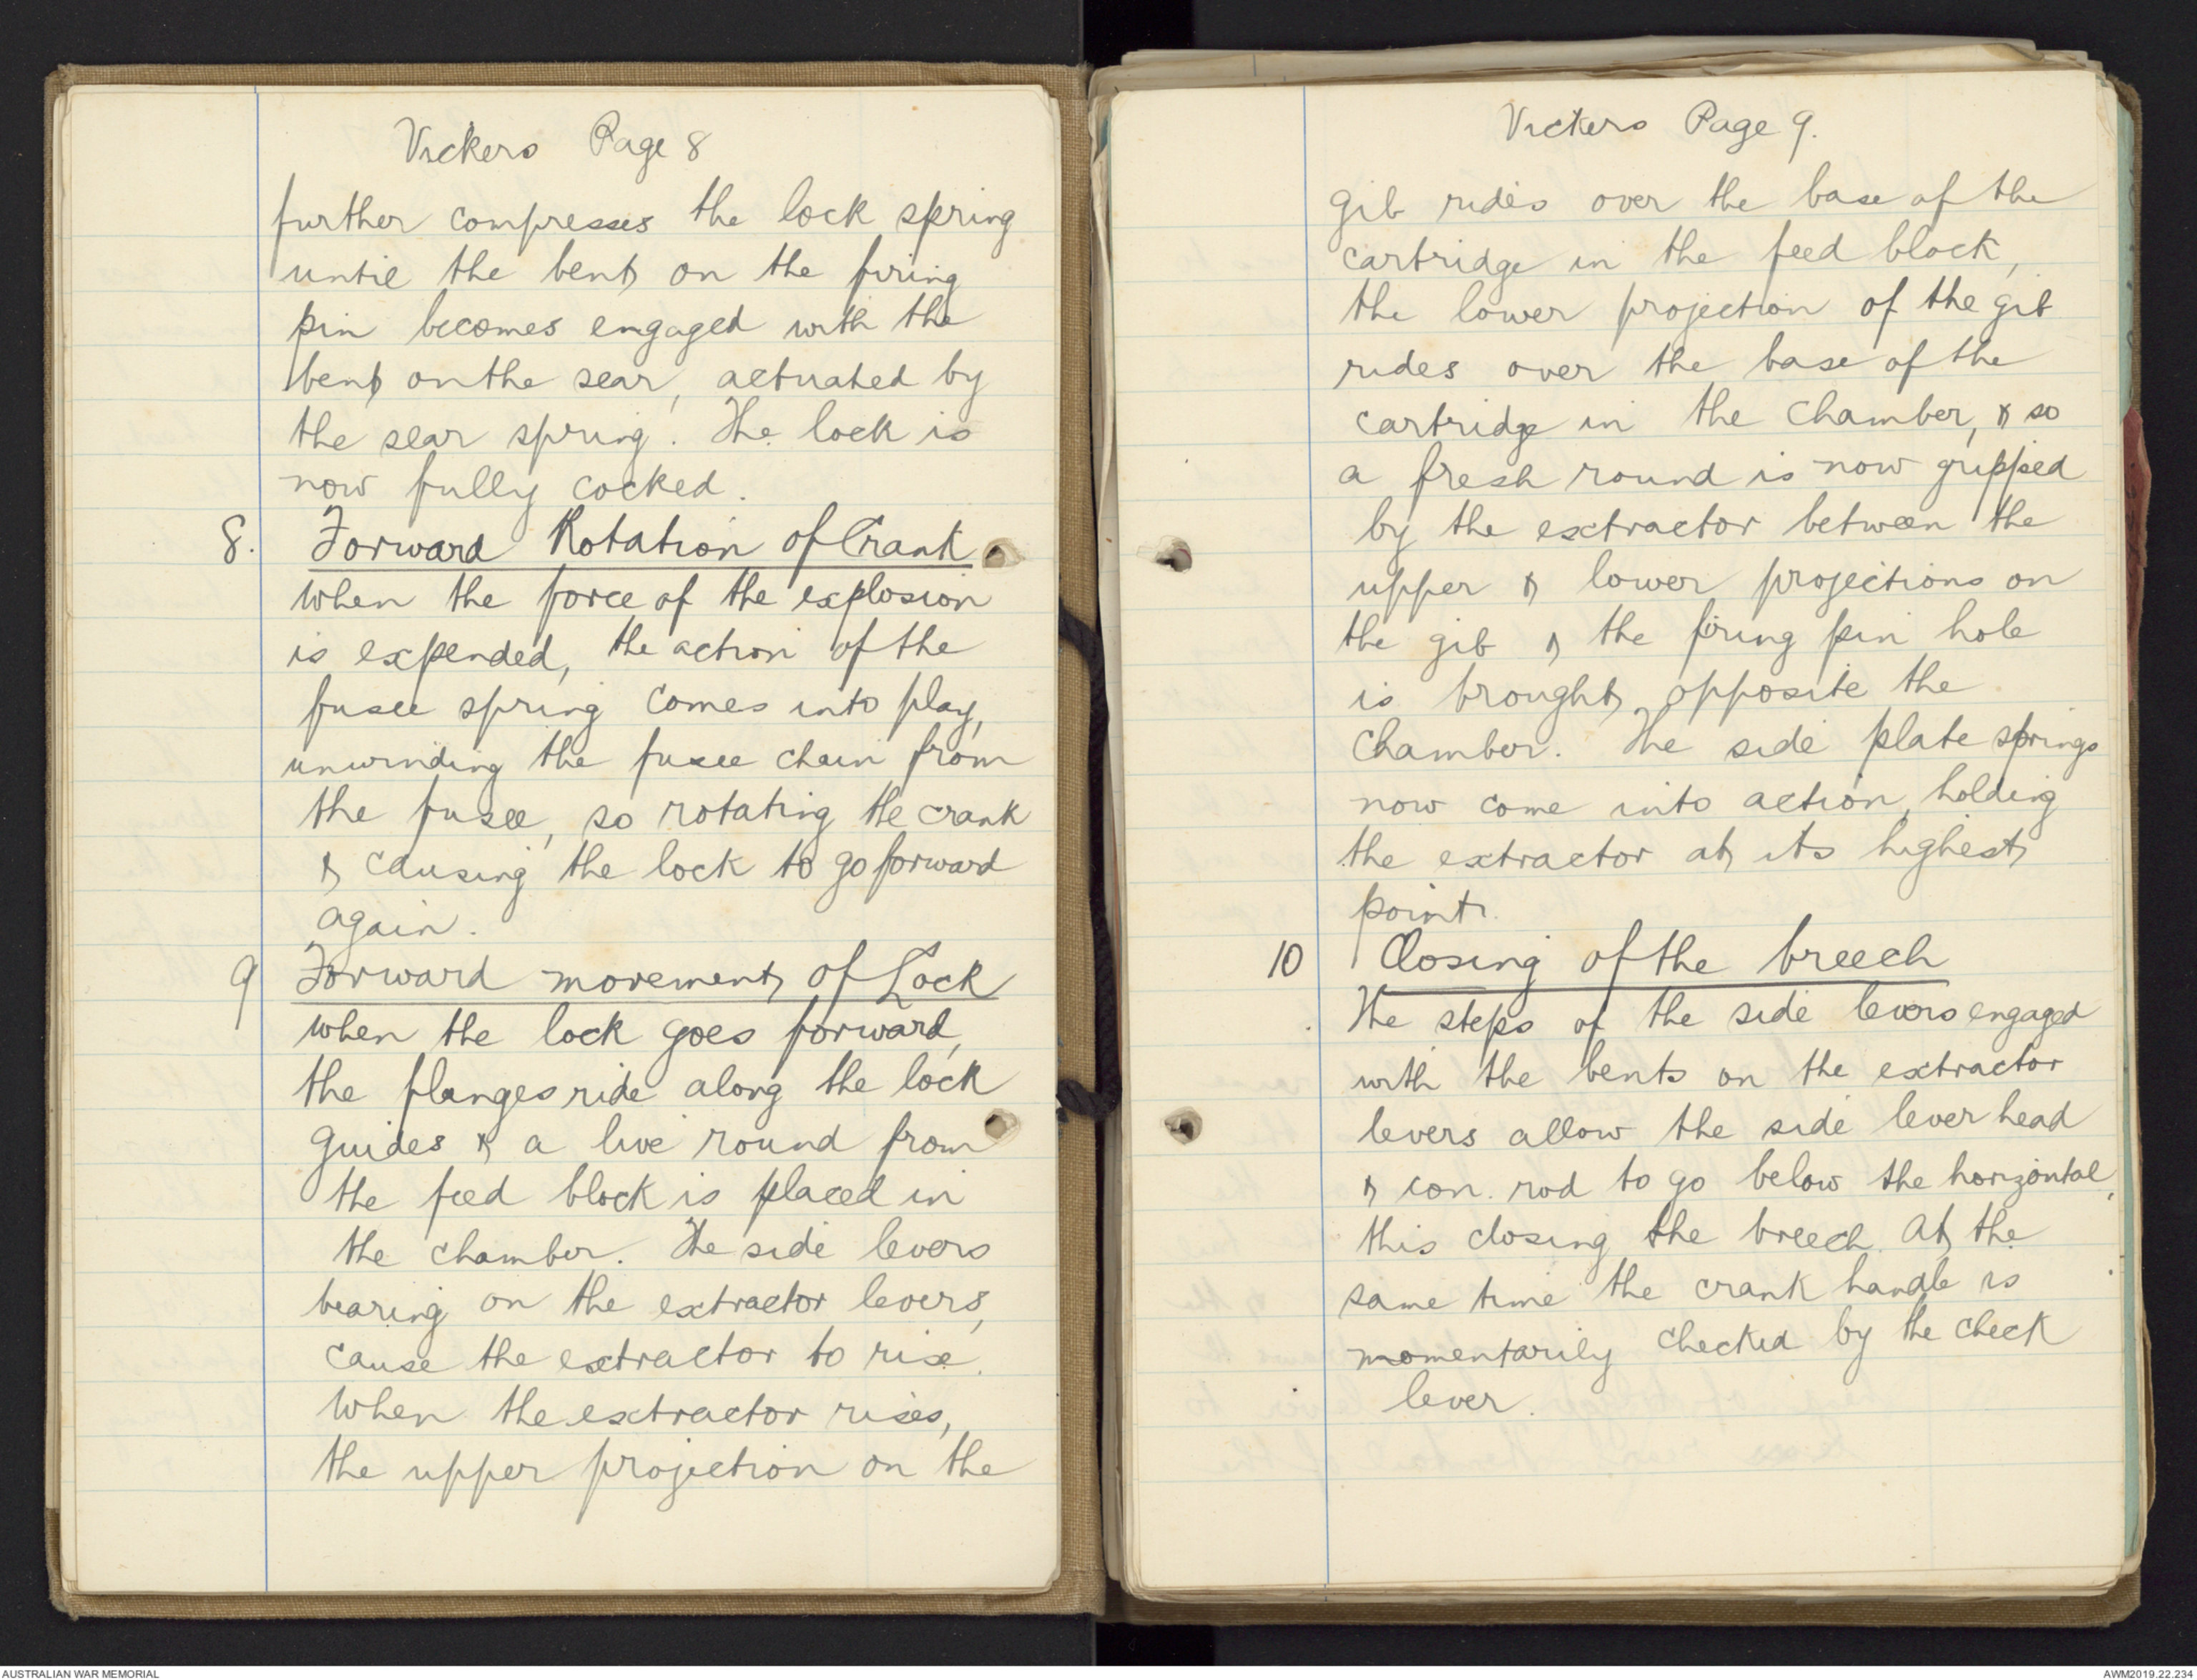 Vickers Page 8
further compresses the lock spring
until the bent on the firing
pin becomes engaged with the
bent on the sear, actuated by
the sear spring. The lock is
now fully cocked.
8. Forward Rotation of Crank
When the force of the explosion
is expended, the action of the
fusee spring comes into play,
unwinding the fusee chain from
the fusee, so rotating the crank
& causing the lock to go forward
again.
9 Forward movement of Lock
When the lock goes forward,
the flanges ride along the lock
guides & a live round from
the feed block is placed in
the chamber. The side levers
bearing on the extractor levers,
cause the extractor to rise.
When the extractor rises,
the upper projection on the
Vickers Page 9.
gib rides over the base of the
cartridge in the feed block,
the lower projection of the gib
rides over the base of the
cartridge in the chamber, & so
a fresh round is now gripped
by the extractor between the
upper & lower projections on
the gib & the firing pin hole
is brought opposite the
chamber. The side plate springs
now come into action, holding
the extractor at its highest
point.
10 Closing of the breech
The steps of the side levers engaged
with the bents on the extractor
levers allow the side lever head
& con. rod to go below the horizontal,
this closing the breech. At the
same time the crank handle is
momentarily checked by the check
lever.
AUSTRALIAN WAR MEMORIAL
AWM2019.22.234